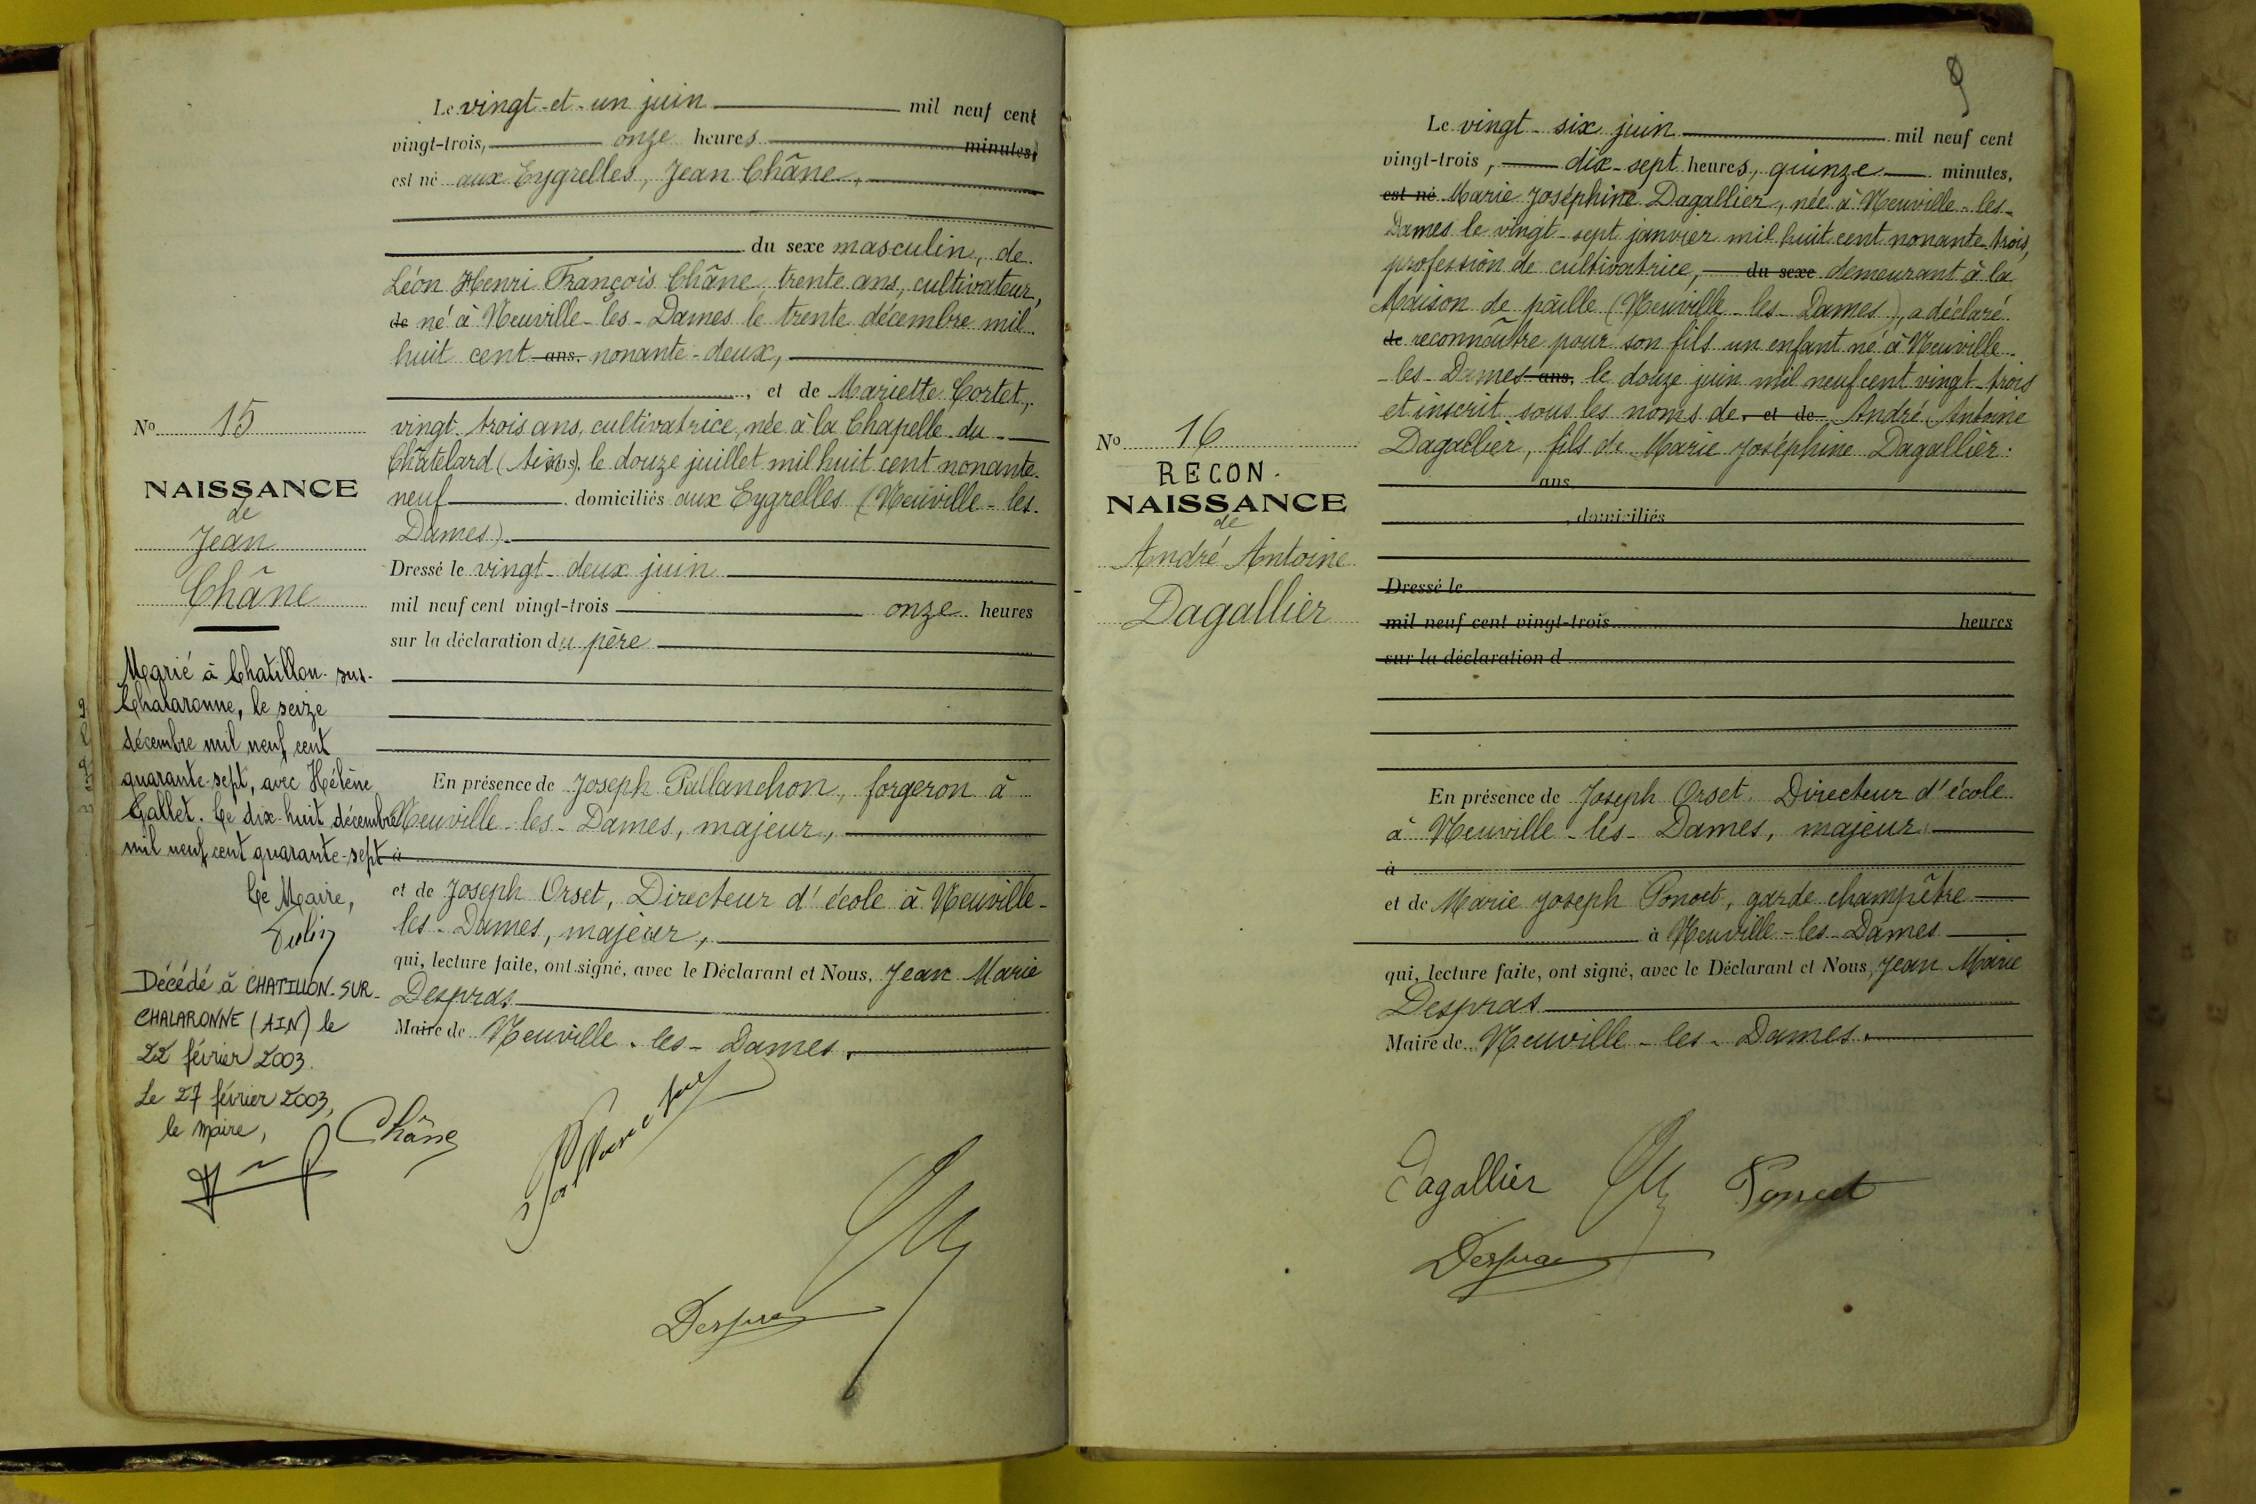 Le vingt-et-un juin mil neuf cent
vingt-trois, onze heures minutes,
est né aux Eygrelles, Jean Châne,
du sexe masculin, de
Léon Henri François Châne trente ans, cultivateur,
de né à Neuville-les-Dames le trente décembre mil
huit cent ans, nonante-deux,
, et de Mariette Cortet,
vingt-trois ans, cultivatrice, née à la Chapelle-du-
Châtelard (Ain), le douze juillet mil huit cent nonante-
neuf domiciliés aux Eygrelles (Neuville-les-
Dames).
Dressé le vingt-deux juin
mil neuf cent vingt-trois onze heures
sur la déclaration du père
En présence de Joseph Pallanchon, forgeron à
Neuville-les-Dames, majeur,
à
et de Joseph Orset, Directeur d'école à Neuville-
les-Dames, majeur,
qui, lecture faite, ont signé, avec le Déclarant et Nous, Jean Marie
Despras
Maire de Neuville-les-Dames.
No 15
NAISSANCE
de
Jean
Châne
Marié à Chatillon-sur-
Chalaronne, le seize
décembre mil neuf cent
quarante-sept, avec Hélène
Gallet. Le dix-huit décembre
mil neuf cent quarante-sept
Le Maire,
Décédé à CHATILLON-SUR-
CHALARONNE (AIN) le
22 février 2003.
Le 27 février 2003,
le maire,
Châne
Despras
9
Le vingt-six juin mil neuf cent
vingt-trois, dix-sept heures, quinze minutes,
est né Marie Joséphine Dagallier, née à Neuville-les-
Dames le vingt-sept janvier mil huit cent nonante-trois,
profession de cultivatrice, du sexe demeurant à la
Maison de paille (Neuville-les-Dames), a déclaré
de reconnaître pour son fils un enfant né à Neuville-
-les-Dames ans, le douze juin mil neuf cent vingt-trois
et inscrit sous les noms de, et de André Antoine
Dagallier, fils de Marie Joséphine Dagallier.
ans
, domiciliés
Dressé le
mil neuf cent vingt-trois heures
sur la déclaration d
En présence de Joseph Orset Directeur d'école
à Neuville-les-Dames, majeur
à
et de Marie Joseph Poncet, garde champêtre
à Neuville-les-Dames
qui, lecture faite, ont signé, avec le Déclarant et Nous, Jean Marie
Despras
Maire de Neuville-les-Dames.
No 16
RECON.
NAISSANCE
de
André Antoine
Dagallier
Dagallier Poncet
Despras